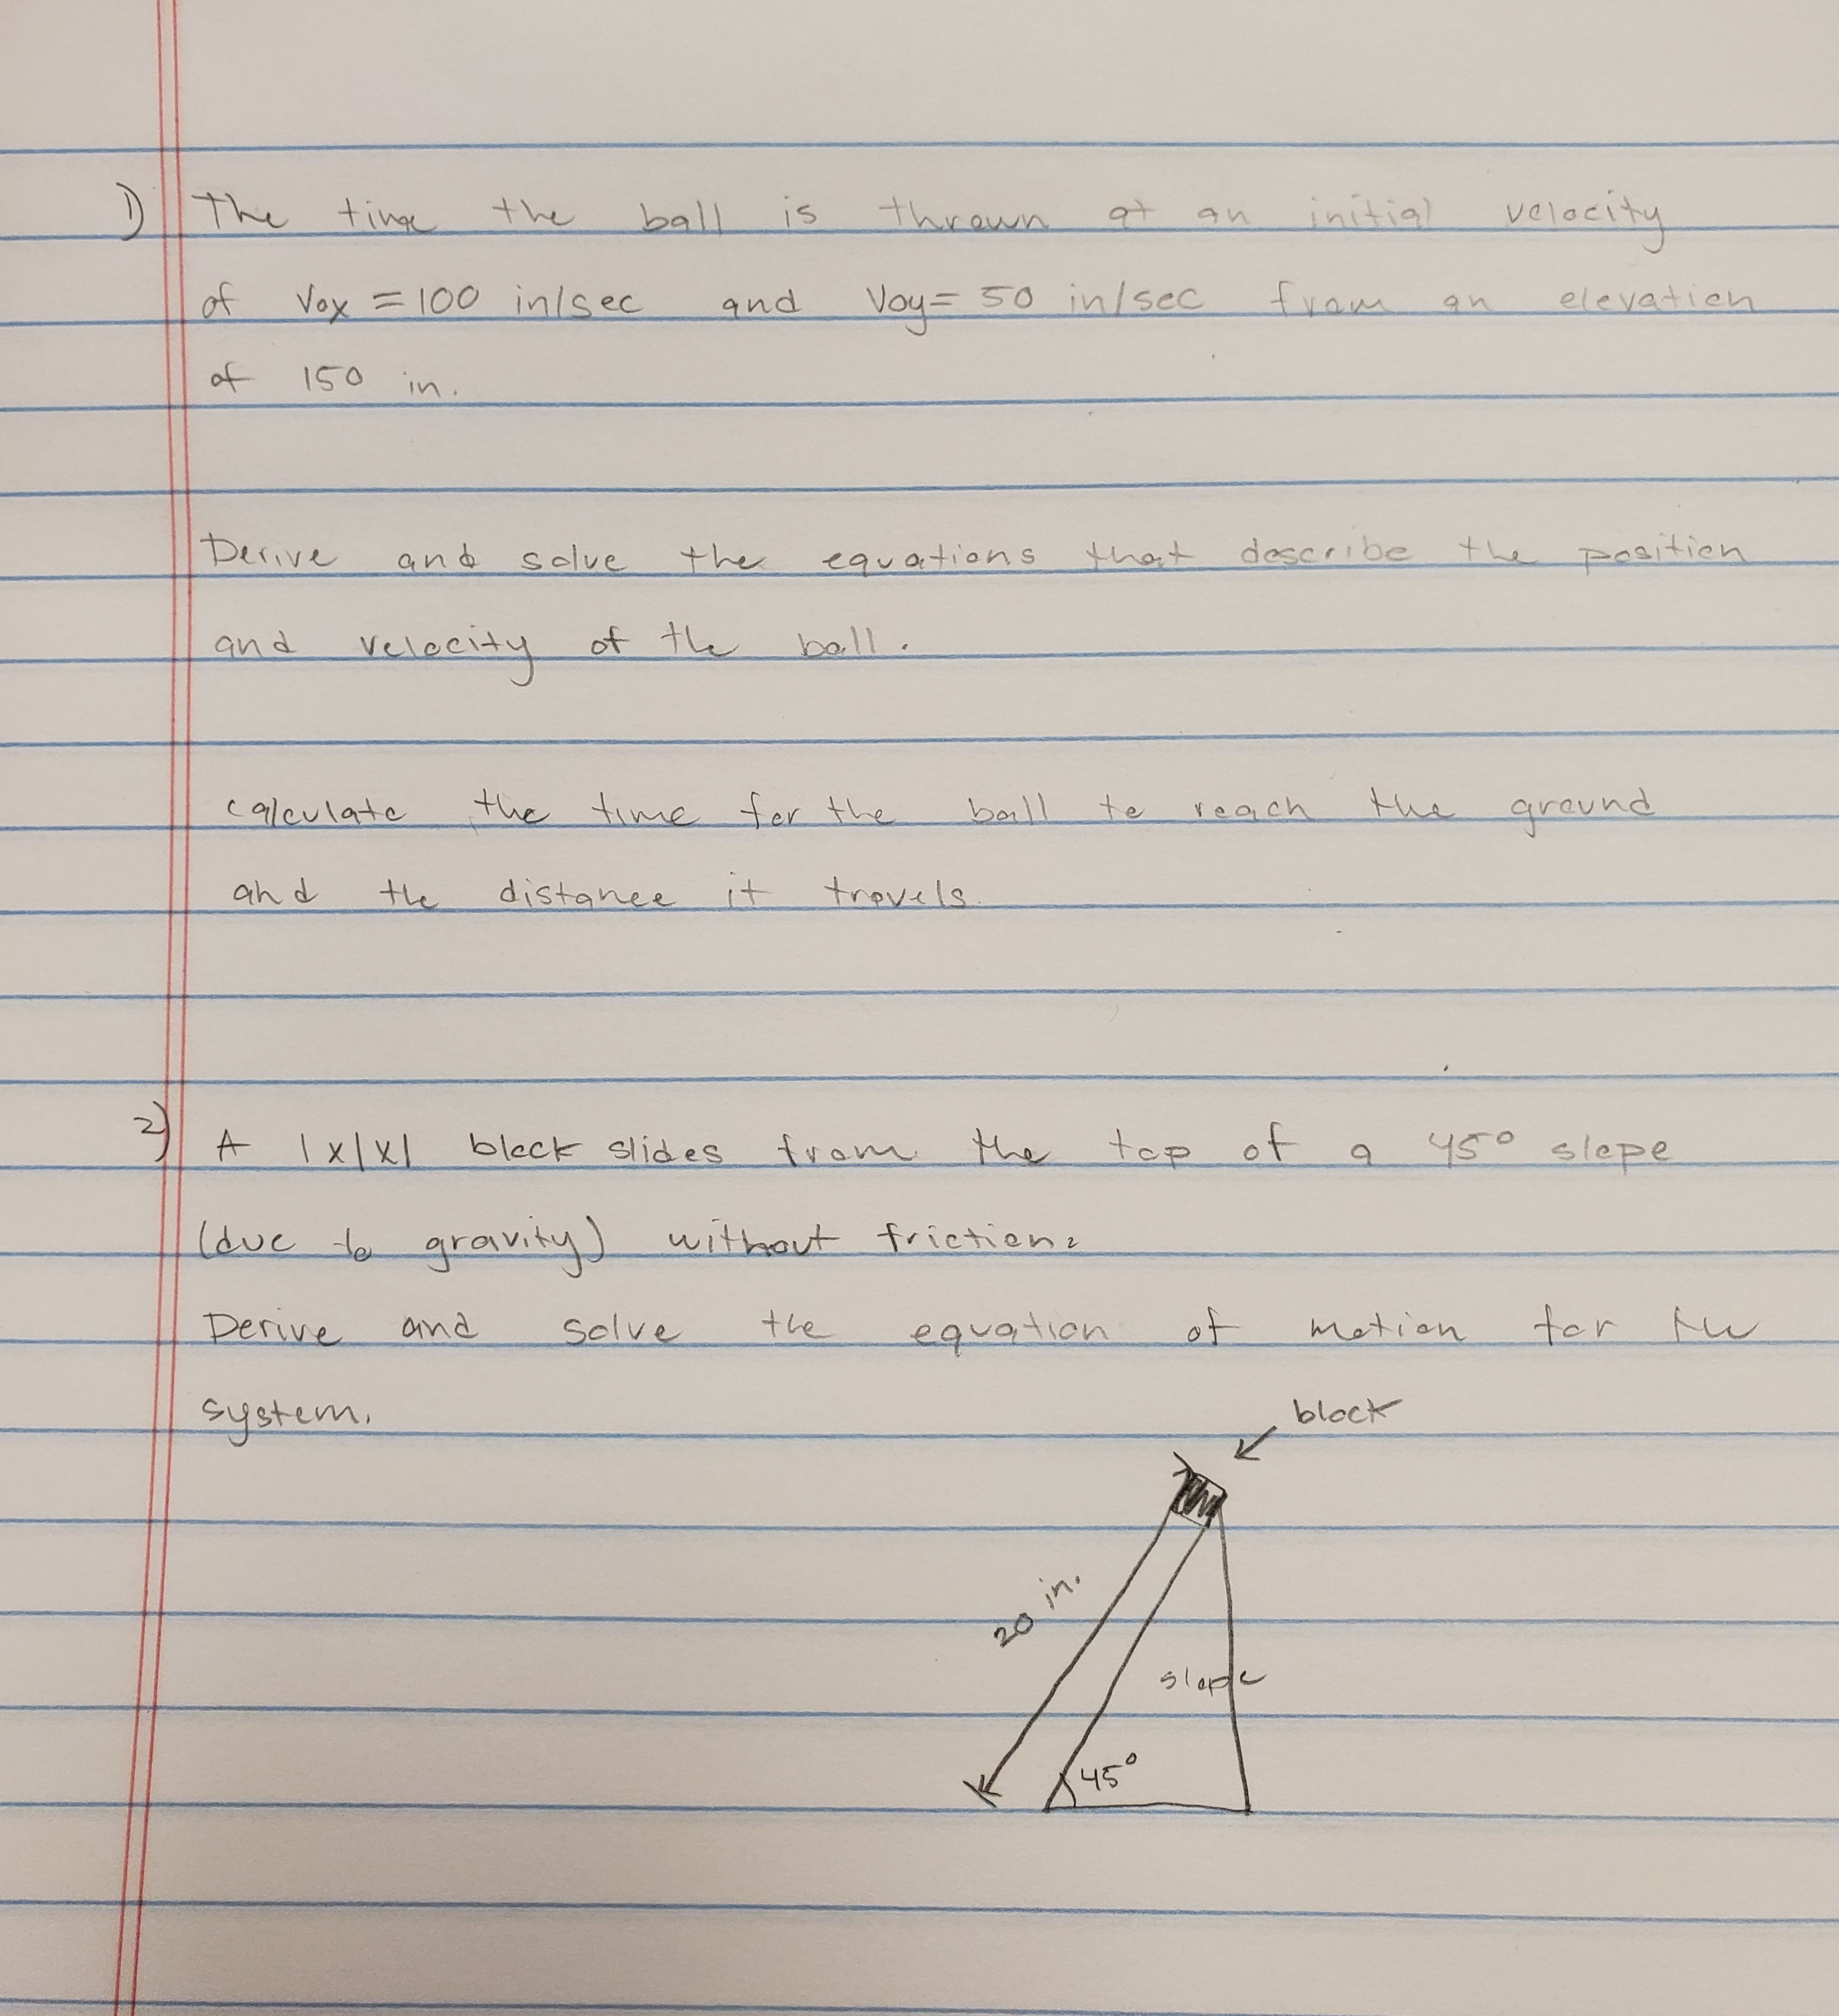 1) The time the ball is thrown at an initial velocity
of Vox = 100 in/sec and Voy = 50 in/sec from an elevation
of 150 in.
Derive and solve the equations that describe the position
and velocity of the ball.
calculate the time for the ball to reach the ground
and the distance it travels.
2) A 1x1x1 block slides from the top of a 45° slope
(due to gravity) without friction.
Derive and solve the equation of motion for the
system.
block
20 in.
slope
45°